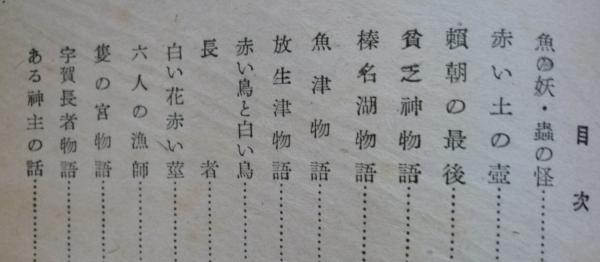 目次
魚の妖・蟲の怪…………
赤い土の壺…………
賴朝の最後…………
貧乏神物語…………
榛名湖物語…………
魚津物語…………
放生津物語…………
赤い鳥と白い鳥…………
長者…………
白い花赤い莖…………
六人の漁師…………
隻の宮物語…………
宇賀長者物語…………
ある神主の話…………